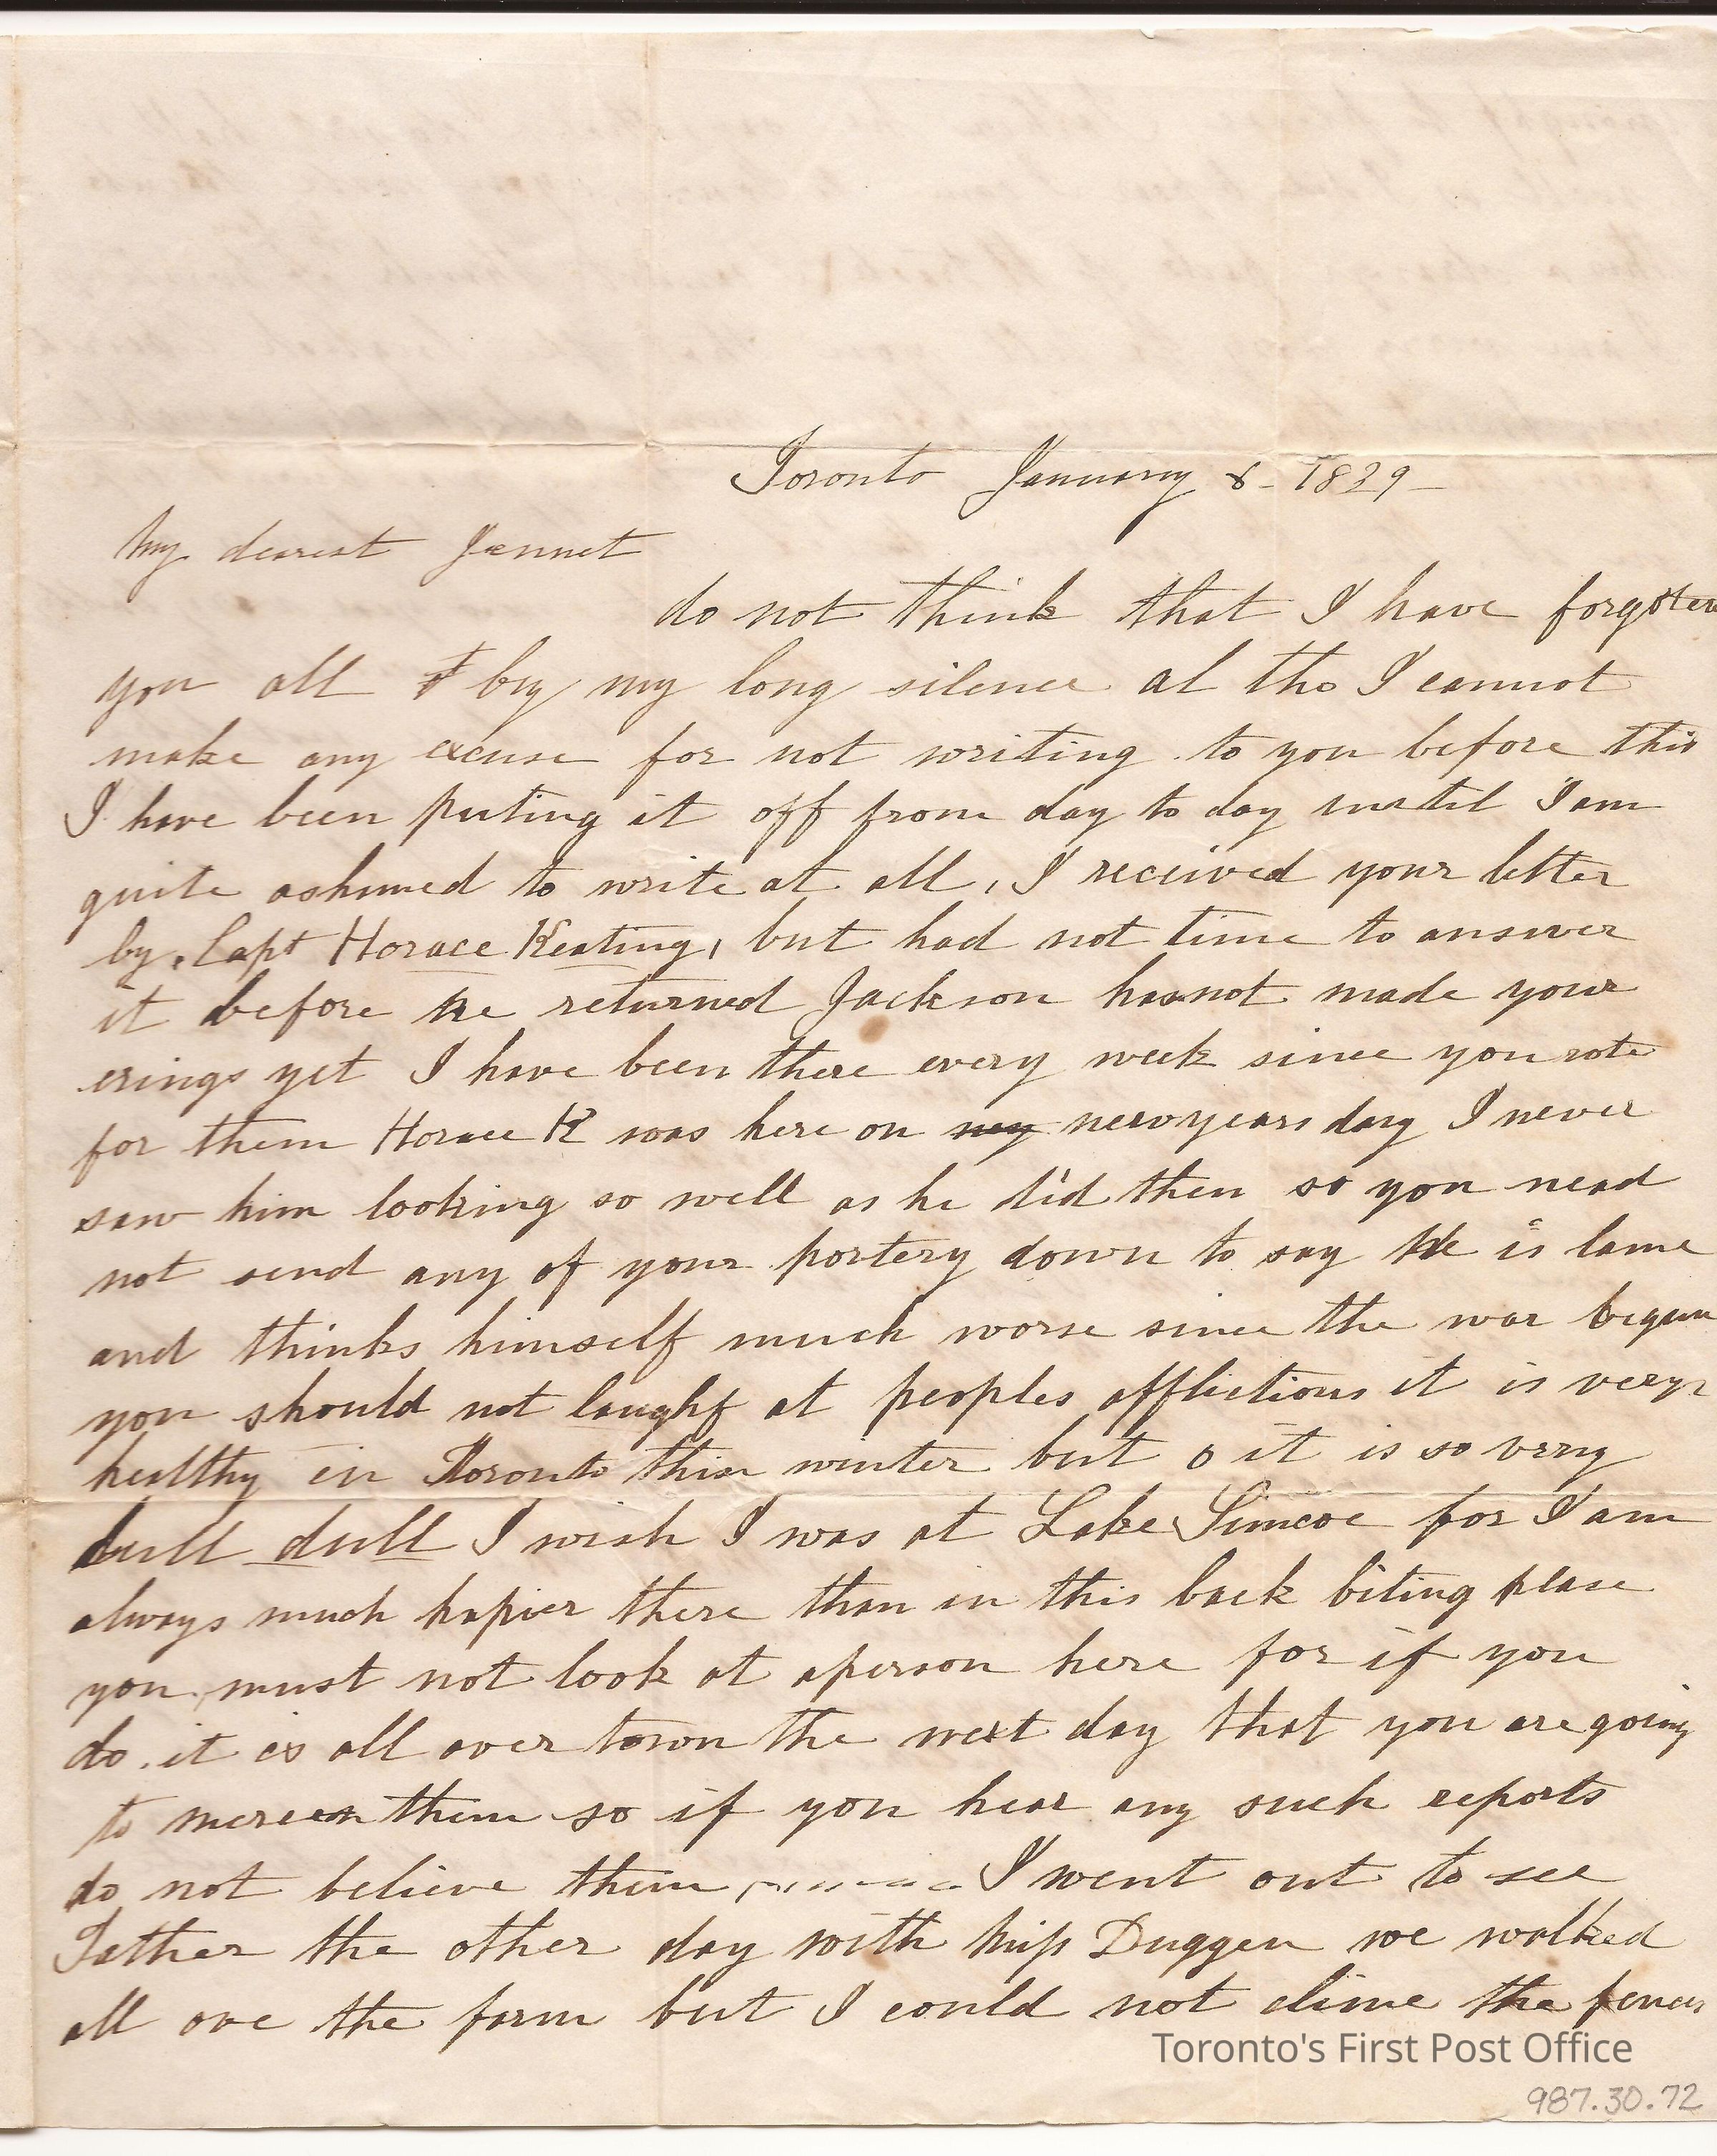 Toronto January 8 - 1839 -
My dearest Jennet
do not think that I have forgoten
you all by my long silence al tho I cannot
make any excuse for not writing to you before this
I have been puting it off from day to day until I am
quite ashumed to write at all, I received your letter
by, Capt Horace Keating, but had not time to answer
it before he returned Jackson has not made your
erings yet I have been there every week since you rote
for them Horace K was here on newyears day I never
saw him looking so well as he did then so you nead
not send any of your portery down to say He is lame
and thinks himself much worse since the war began
you should not laugh at peoples afflictions it is very
healthy in Toronto this winter but o it is so very
dull dull I wish I was at Lake Simcoe for I am
always much hapier there than in this back biting place
you must not look at aperson here for if you
do . it is all over town the next day that you are going
to them so if you hear any such reports
do not believe them I went out to see
Father the other day with Miss Duggen we walked
all ove the farm but I could not clime the fences
Toronto's First Post Office
987.30.72